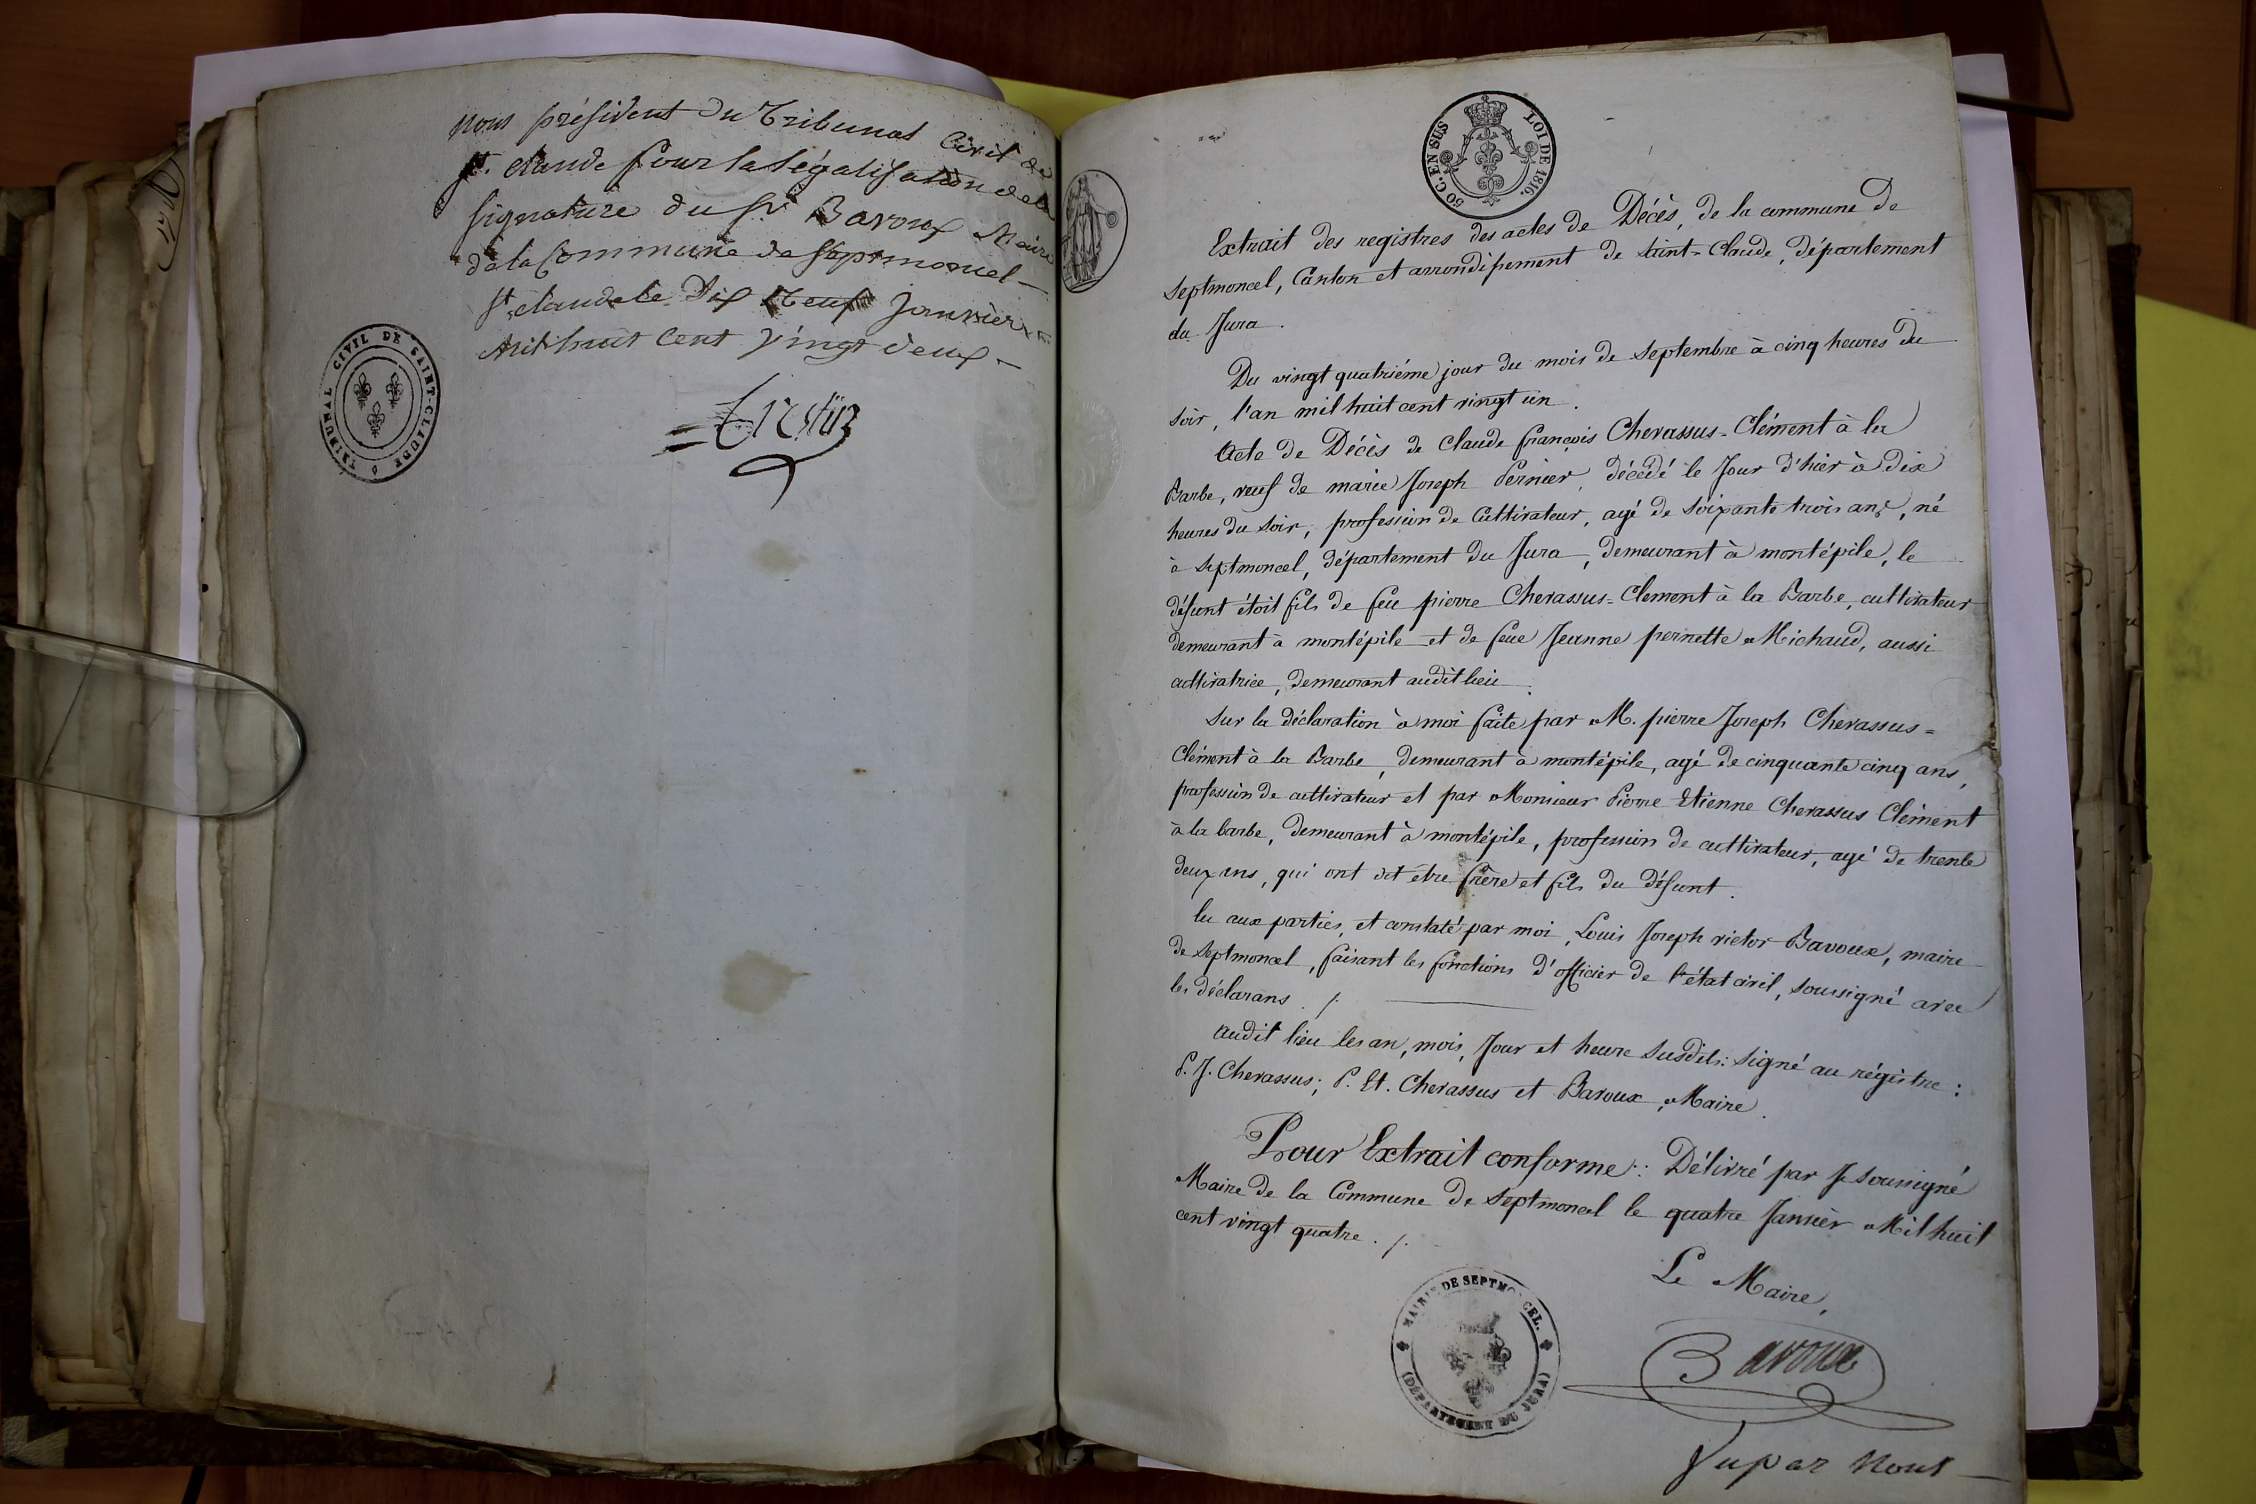 nous président du Tribunal Civil de
St. claude pour la légalisation de la
signature du Sr. Bavoux Maire
de la Commune de Septmoncel
St claude le Dix Neuf Janvier
Mil huit Cent Vingt deux
TRIBUNAL CIVIL DE SAINT-CLAUDE
50 C. EN SUS
LOI DE 1816.
Extrait des registres des actes de Décès, de la commune de
Septmoncel, Canton et arrondissement de Saint-Claude, département
du Jura.
Du vingt quatrième jour du mois de Septembre à cinq heures du
Soir, l'an mil huit cent vingt un.
Acte de Décès de Claude françois Chevassus-Clément à la
Barbe, veuf de marie Joseph Pernier, décédé le Jour d'hier à dix
heures du Soir, profession de Cultivateur, agé de Soixante trois ans, né
à Septmoncel, département du Jura, demeurant à montépile, le
défunt étoit fils de feu pierre Chevassus=Clement à la Barbe, cultivateur
demeurant à montépile et de feue Jeanne pernette Michaud, aussi
cultivatrice, demeurant audit lieu.
Sur la déclaration à moi faite par M. pierre Joseph Chevassus=
Clément à la Barbe, demeurant à montépile, agé de cinquante cinq ans,
profession de cultivateur et par Monsieur Pierre Etienne Chevassus Clément
à la barbe, demeurant à montépile, profession de cultivateur, agé de trente
deux ans, qui ont dit être frère et fils du défunt.
lu aux parties, et constaté par moi, Louis Joseph victor Bavoux, maire
de Septmoncel, faisant les fonctions d'officier de l'état civil, soussigné avec
les déclarans ./.
audit lieu les an, mois, Jour et heure Susdits: Signé au régistre:
P. J. Chevassus; P. Et. Chevassus et Bavoux, Maire.
Pour Extrait conforme: Délivré par Je soussigné
Maire de la Commune de Septmoncel le quatre Janvier Mil huit
cent vingt quatre ./.
Le Maire,
MAIRIE DE SEPTMONCEL.
(DÉPARTEMENT DU JURA)
Bavoux
Vu par Nous